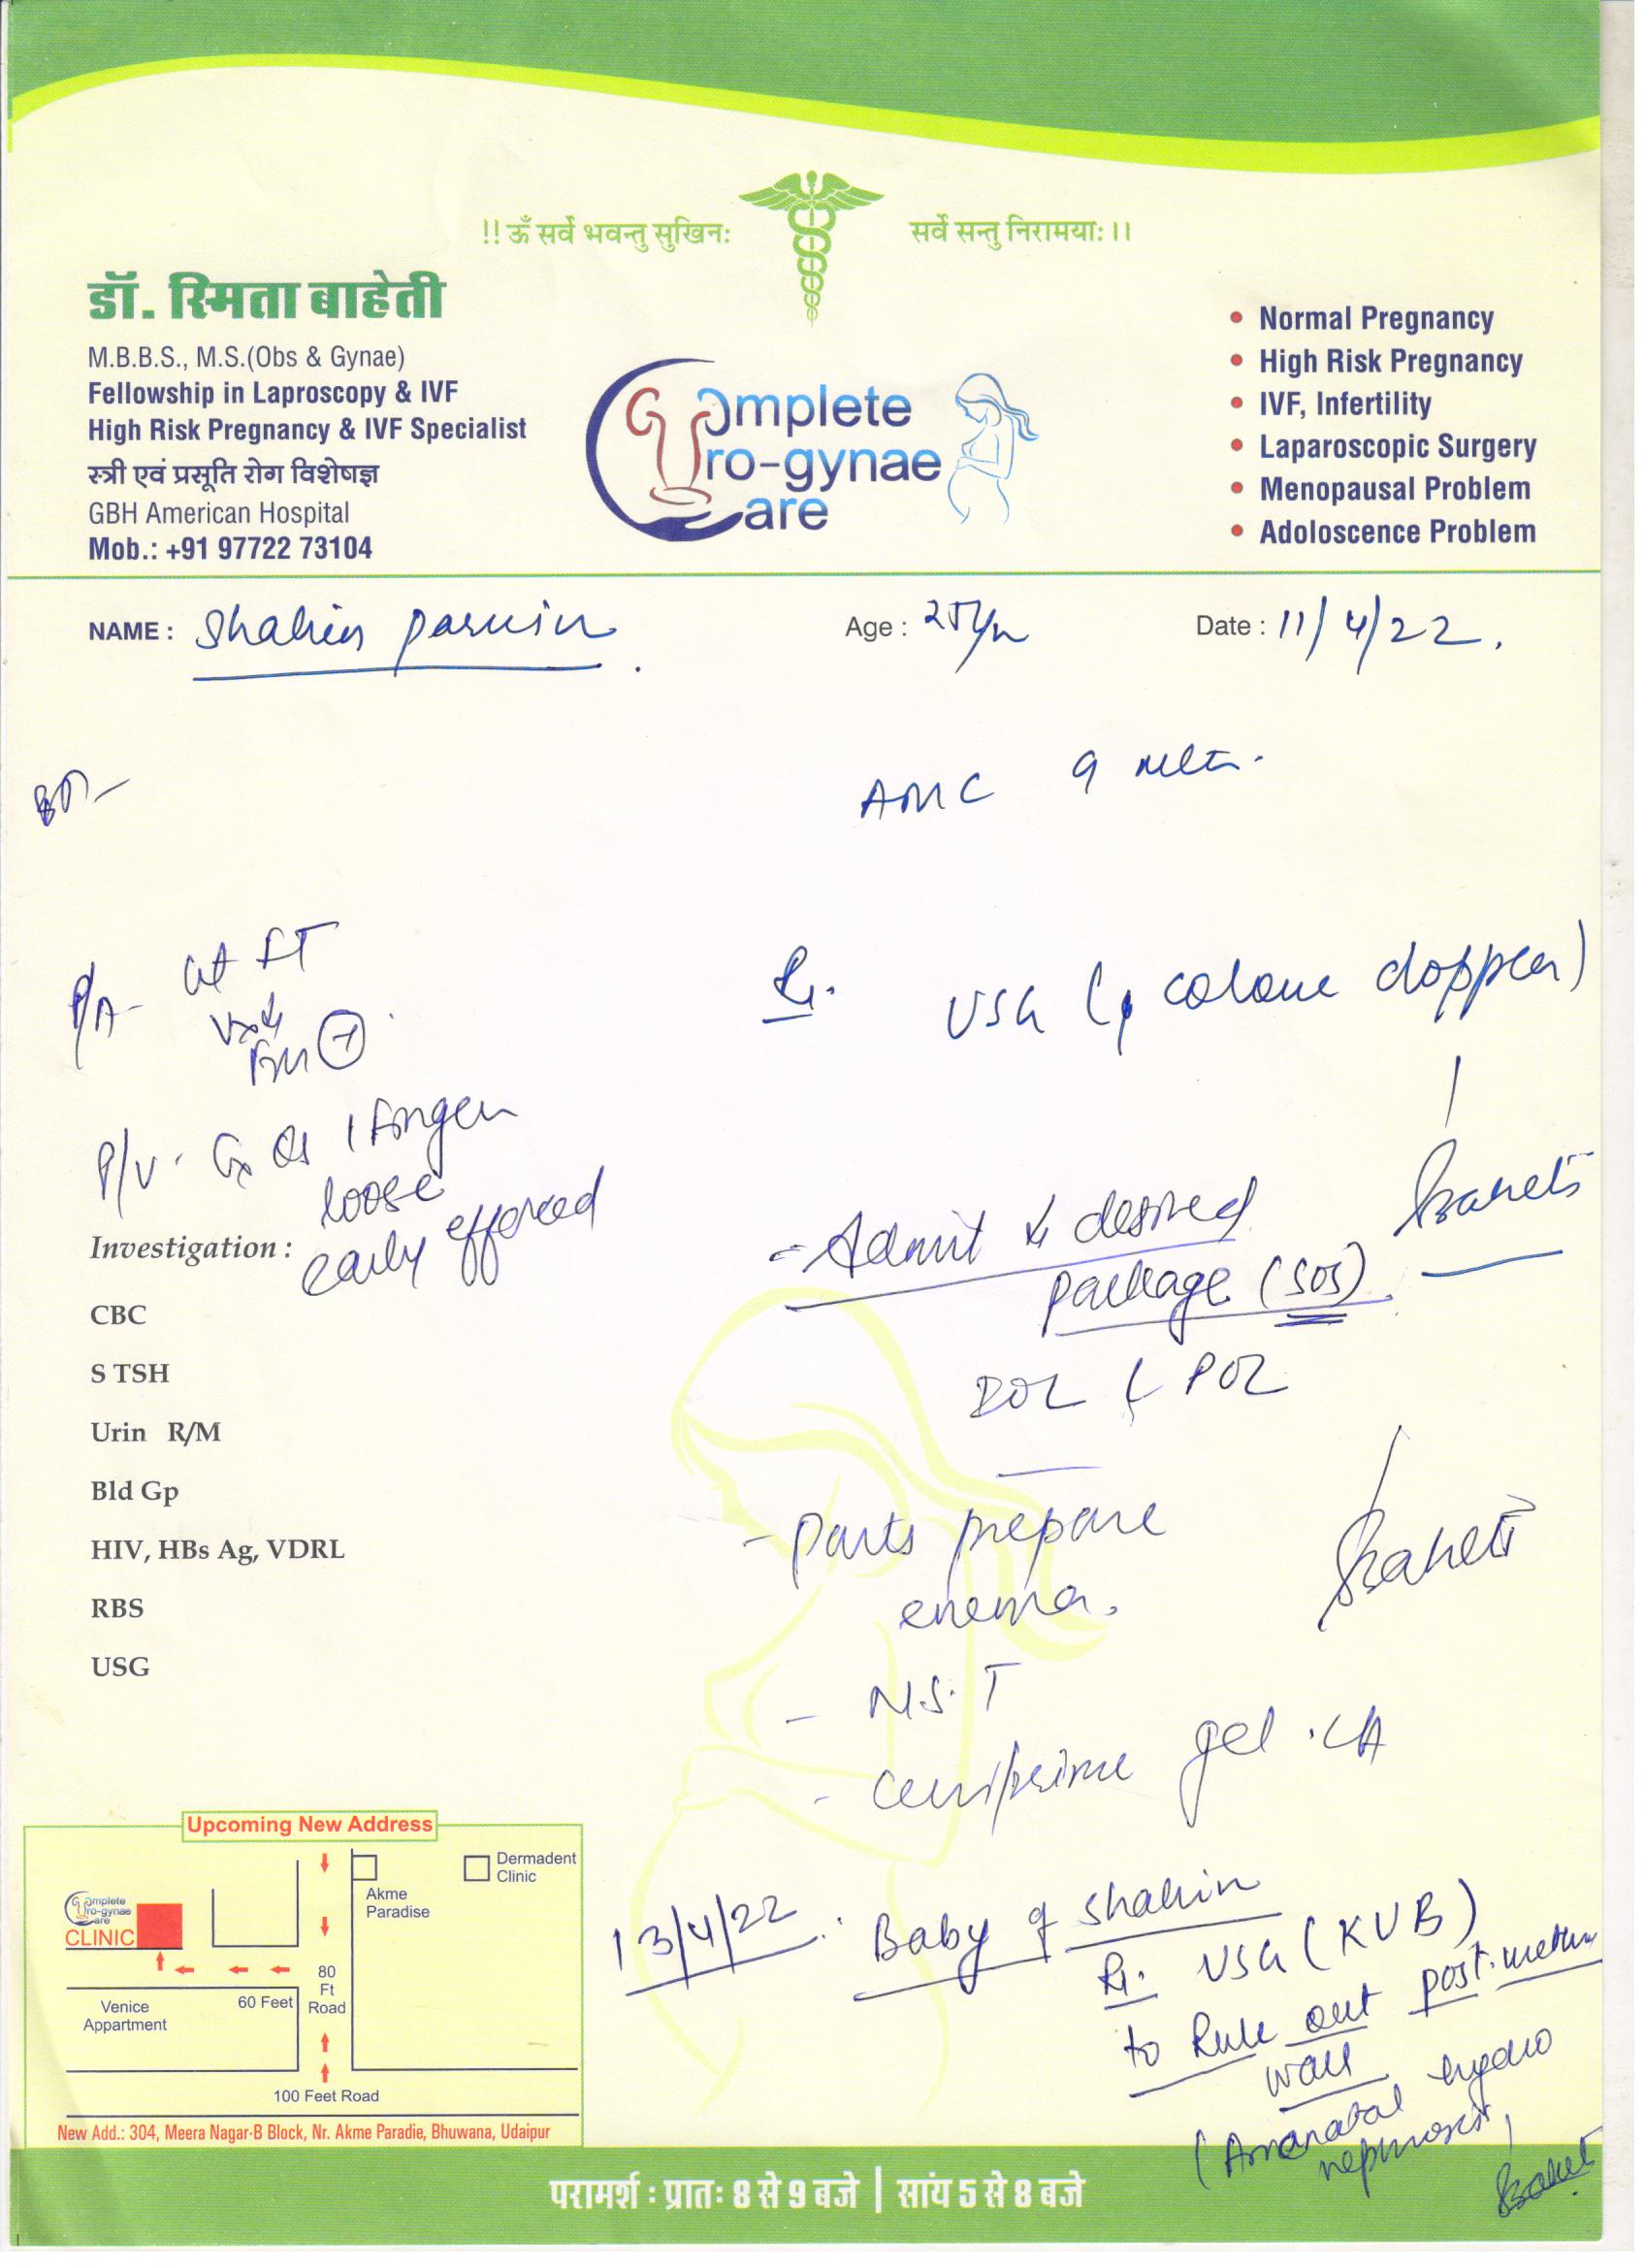 !! ॐ सर्वे भवन्तु सुखिनः सर्वे सन्तु निरामयाः ।।
डॉ. स्मिता बाहेती
M.B.B.S., M.S.(Obs & Gynae)
Fellowship in Laproscopy & IVF
High Risk Pregnancy & IVF Specialist
स्त्री एवं प्रसूति रोग विशेषज्ञ
GBH American Hospital
Mob.: +91 97722 73104
Complete
Uro-gynae
Care
• Normal Pregnancy
• High Risk Pregnancy
• IVF, Infertility
• Laparoscopic Surgery
• Menopausal Problem
• Adoloscence Problem
NAME : Shahin parwin Age : 25yr Date : 11/4/22.
ANC 9 mth.
P/A - ut FT
FM +
P/V. Cx Os 1 finger
loose
early effaced
Rx. USG (colour doppler)
- Admit & desired
package (SOS)
- Parts prepare
enema.
- N.S.T
- Cerviprime gel
Investigation :
CBC
S TSH
Urin R/M
Bld Gp
HIV, HBs Ag, VDRL
RBS
USG
13/4/22 : Baby of Shahin
Rx. USG (KUB)
to Rule out post.
(Antenatal hydro
nephrosis)
Upcoming New Address
Dermadent
Clinic
Akme
Paradise
Complete
Uro-gynae
Care
CLINIC
80
Ft
Road
60 Feet
Venice
Appartment
100 Feet Road
New Add.: 304, Meera Nagar-B Block, Nr. Akme Paradie, Bhuwana, Udaipur
परामर्श : प्रातः 8 से 9 बजे | सांय 5 से 8 बजे